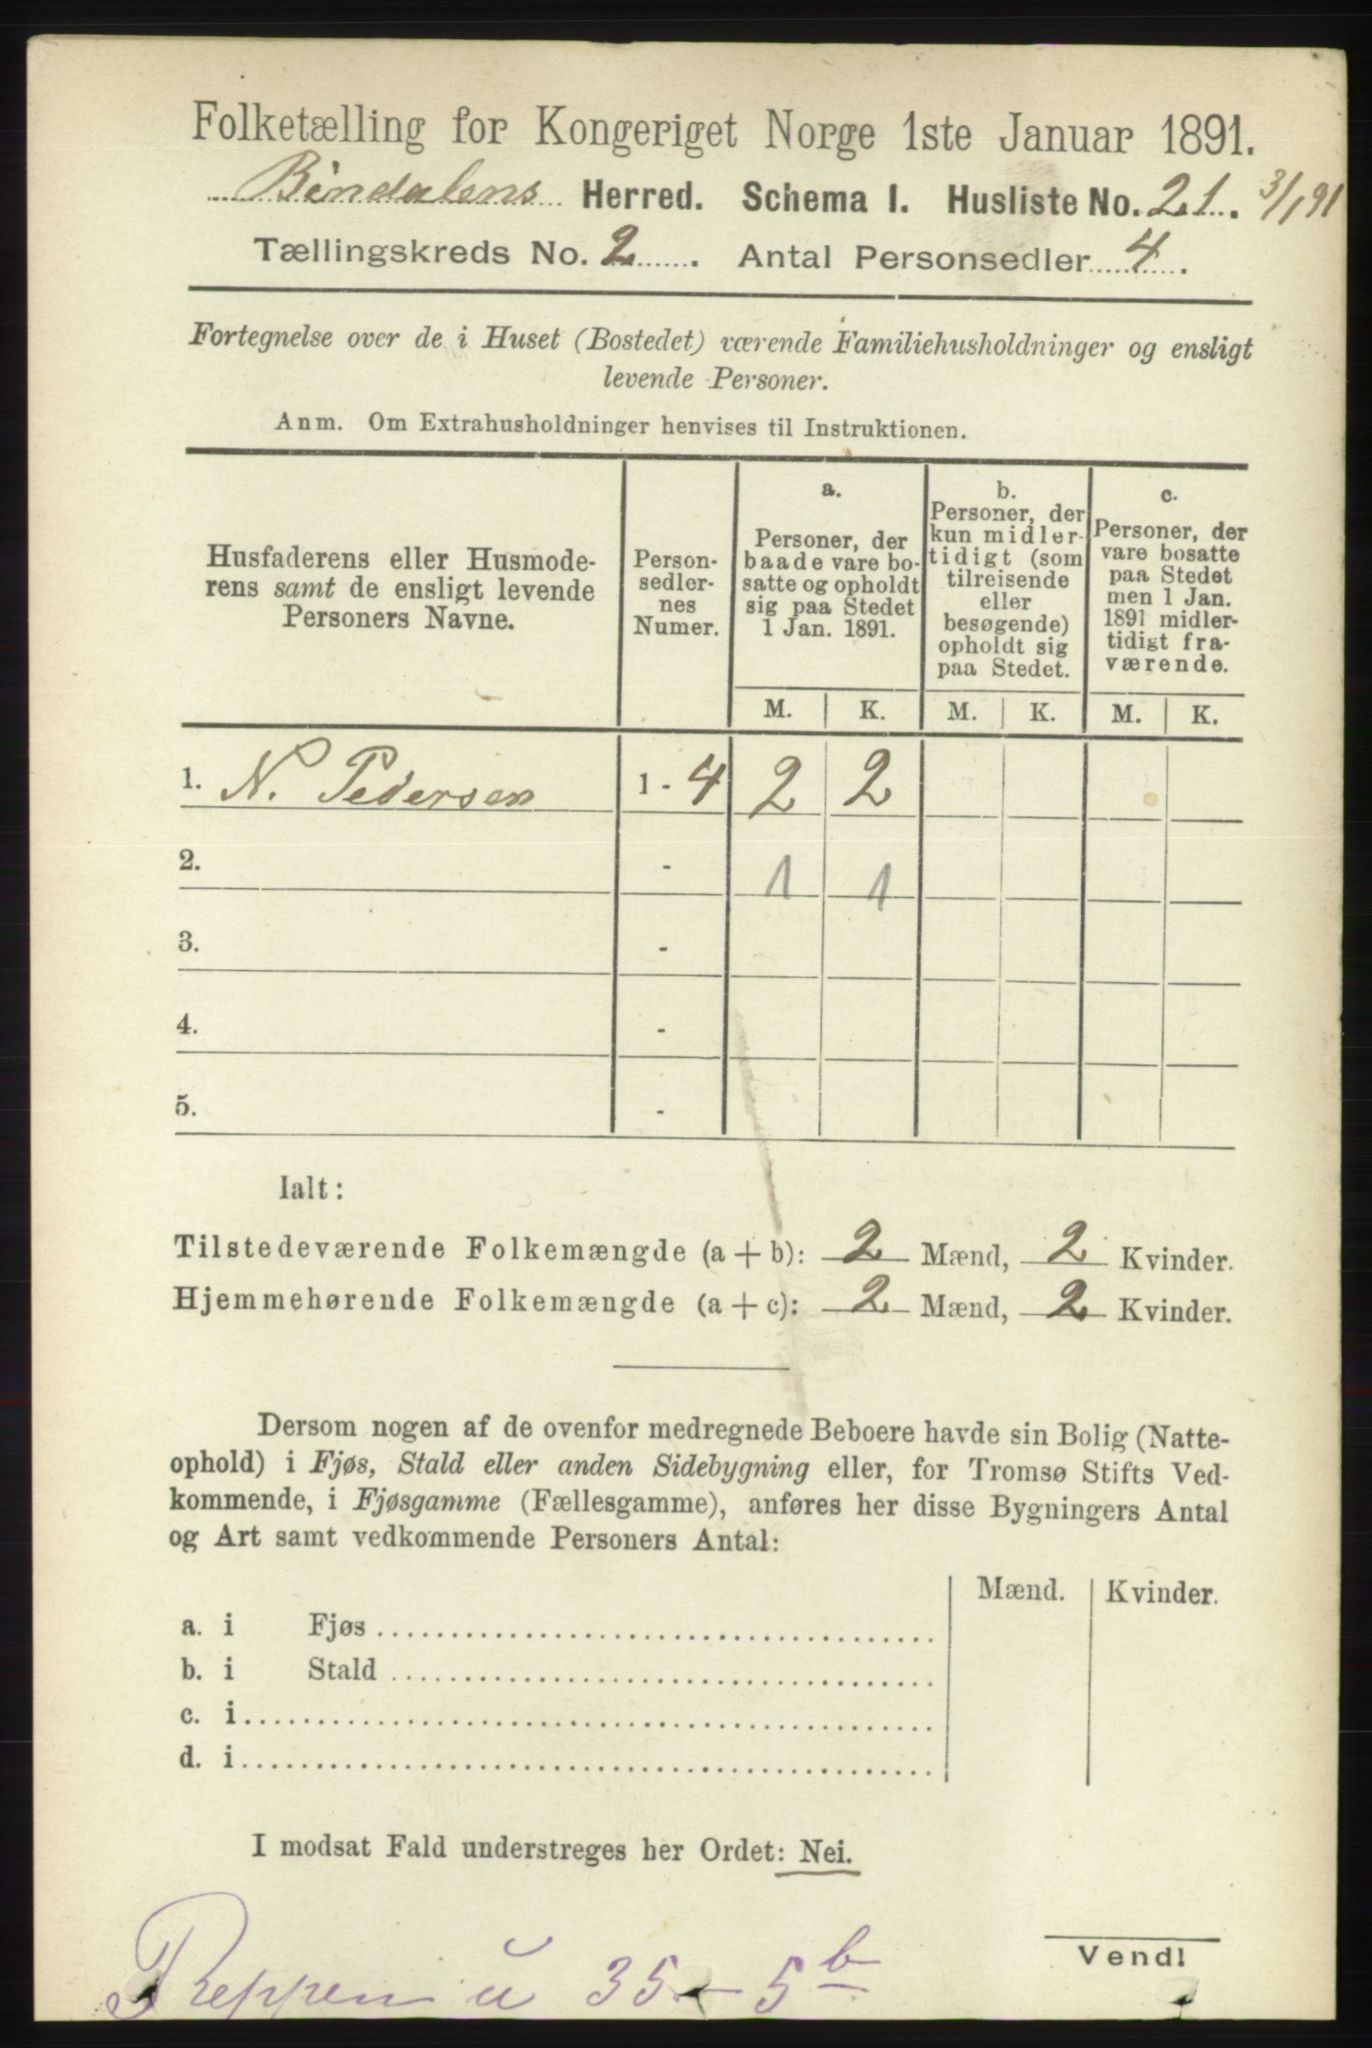 Folketælling for Kongeriget Norge 1ste Januar 1891.
Bindalens Herred. Schema I. Husliste No. 21. 3/1 91
Tællingskreds No. 2. Antal Personsedler 4.
Fortegnelse over de i Huset (Bostedet) værende Familiehusholdninger og ensligt
levende Personer.
Anm. Om Extrahusholdninger henvises til Instruktionen.
Husfaderens eller Husmode-
rens samt de ensligt levende
Personers Navne.
Person-
sedler-
nes
Numer.
a.
Personer, der
baade vare bo-
satte og opholdt
sig paa Stedet
1 Jan. 1891.
b.
Personer, der
kun midler-
tidigt (som
tilreisende
eller
besøgende)
opholdt sig
paa Stedet.
c.
Personer, der
vare bosatte
paa Stedet
men 1 Jan.
1891 midler-
tidigt fra-
værende.
M. K. M. K. M. K.
1. N. Pedersen 1 - 4 2 2
2. - 1 1
3. -
4. -
5. -
Ialt:
Tilstedeværende Folkemængde (a + b): 2 Mænd, 2 Kvinder.
Hjemmehørende Folkemængde (a + c): 2 Mænd, 2 Kvinder.
Dersom nogen af de ovenfor medregnede Beboere havde sin Bolig (Natte-
ophold) i Fjøs, Stald eller anden Sidebygning eller, for Tromsø Stifts Ved-
kommende, i Fjøsgamme (Fællesgamme), anføres her disse Bygningers Antal
og Art samt vedkommende Personers Antal:
Mænd. Kvinder.
a. i Fjøs
b. i Stald
c. i
d. i
I modsat Fald understreges her Ordet: Nei.
Vend!
Reppen u 35 - 5b